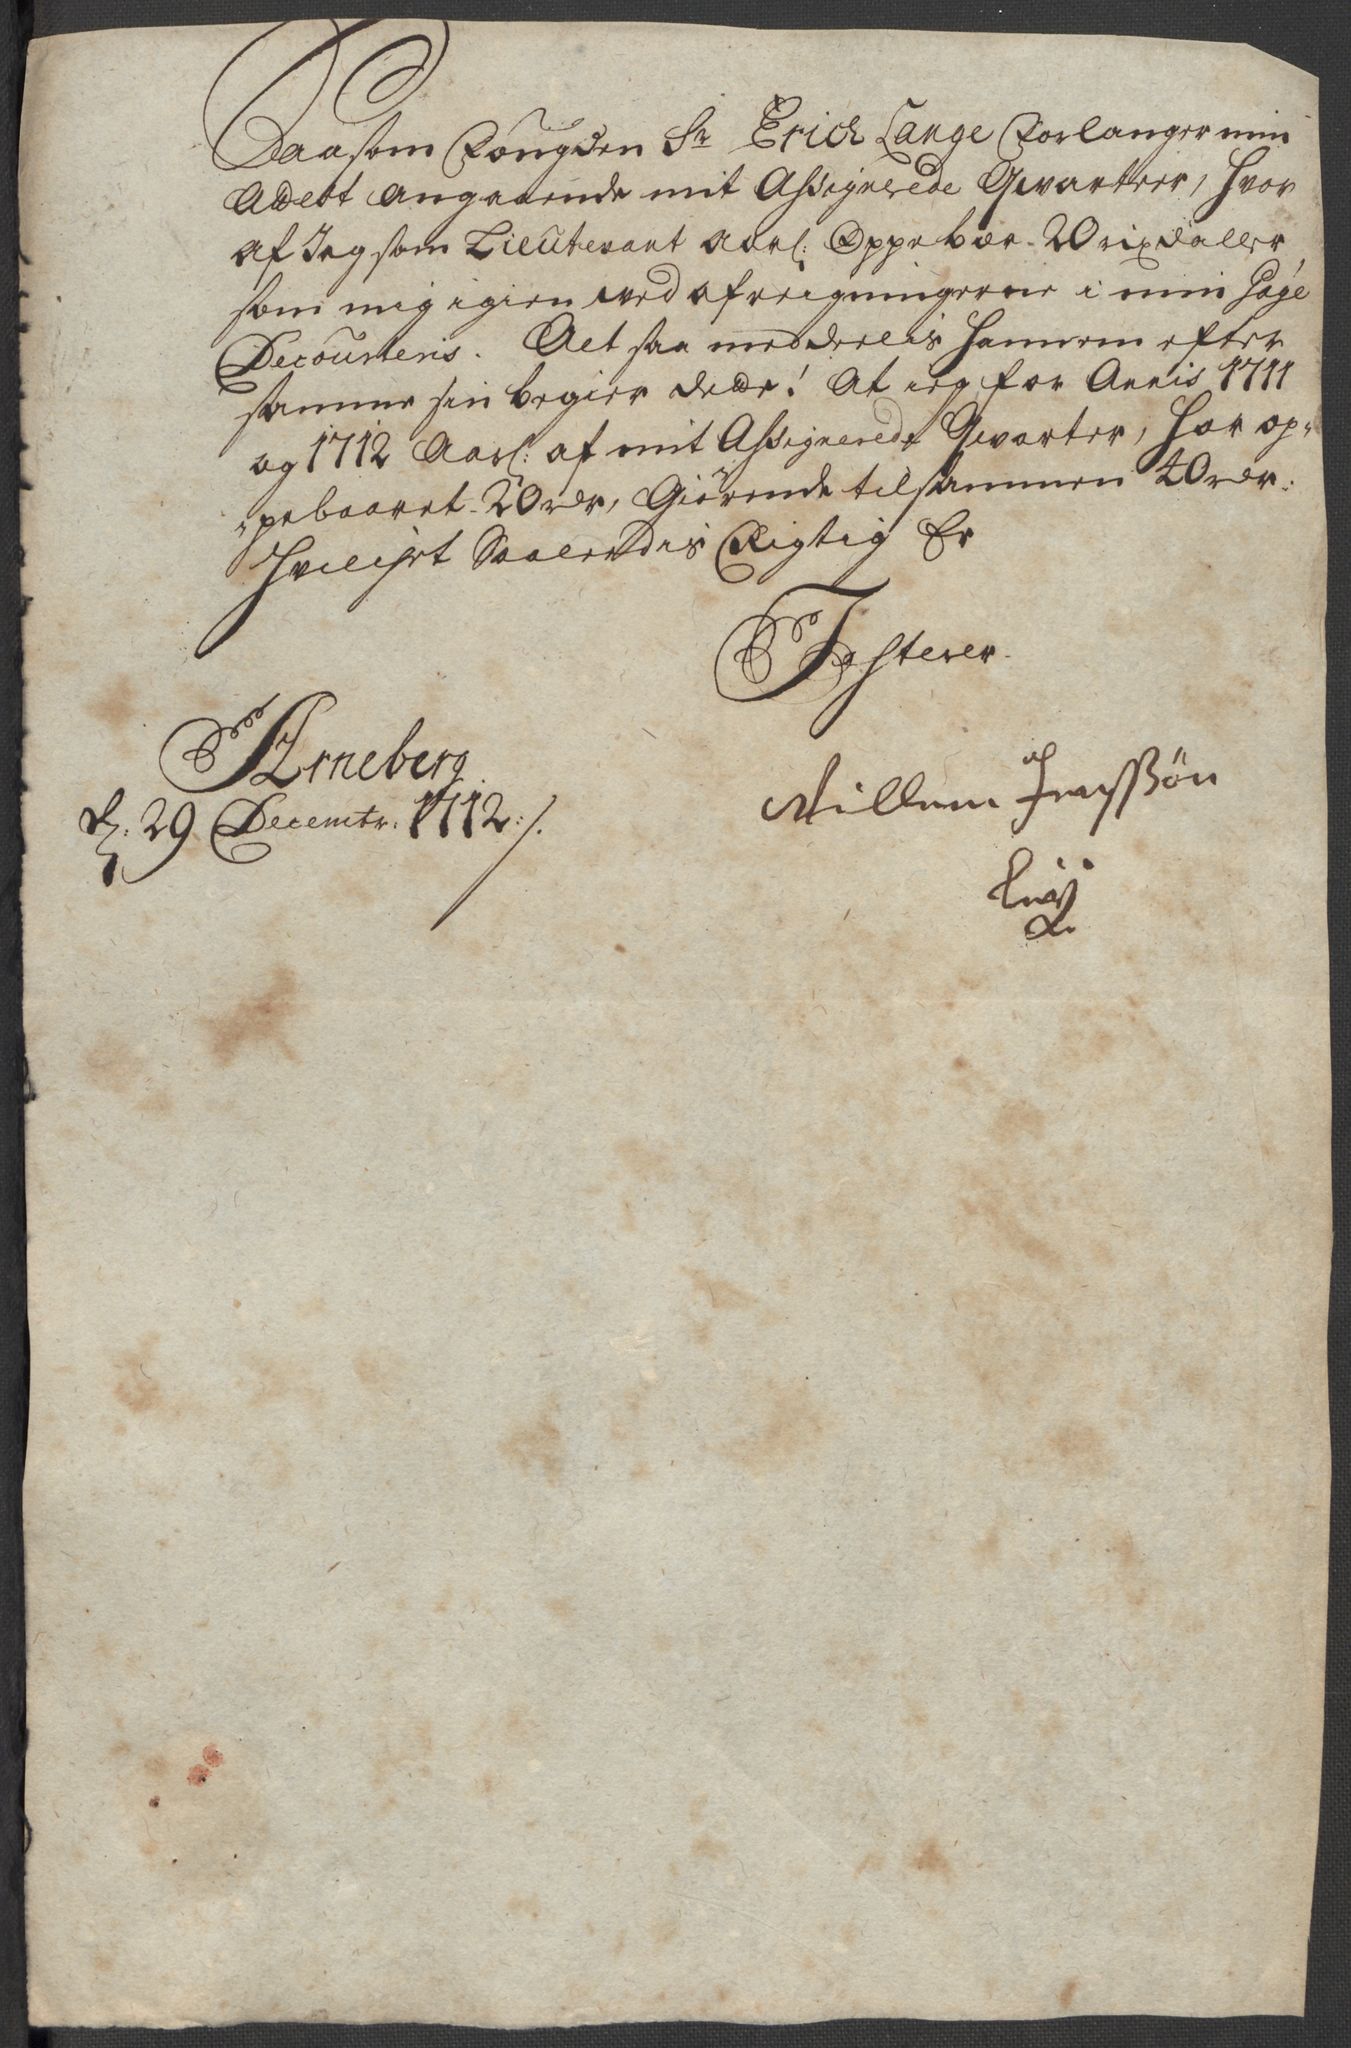 Saasom Fougden Sr Erich Lange Forlanger min
Attest angaaende mit Assignerede Qvarteer, hvor
af Jeg som Lieutenant aarl: Oppebær 20 rixdaller,
som mig igien wed afreigningerne i min Gage
Decourteris. Alt saa meddeelis hannem efter
samme sin begier dette! At ieg for Annis 1711
og 1712 Aarl: af mit Assignerede Qvarter, har op-
pebaaret 20 rdr, Giørende tilsammen 40 rdr:
Hvilchet Saaledis Rigtig Er
Testerer
Arneberg
d: 29 Decembr. 1712:/.
Willum Jenssøn